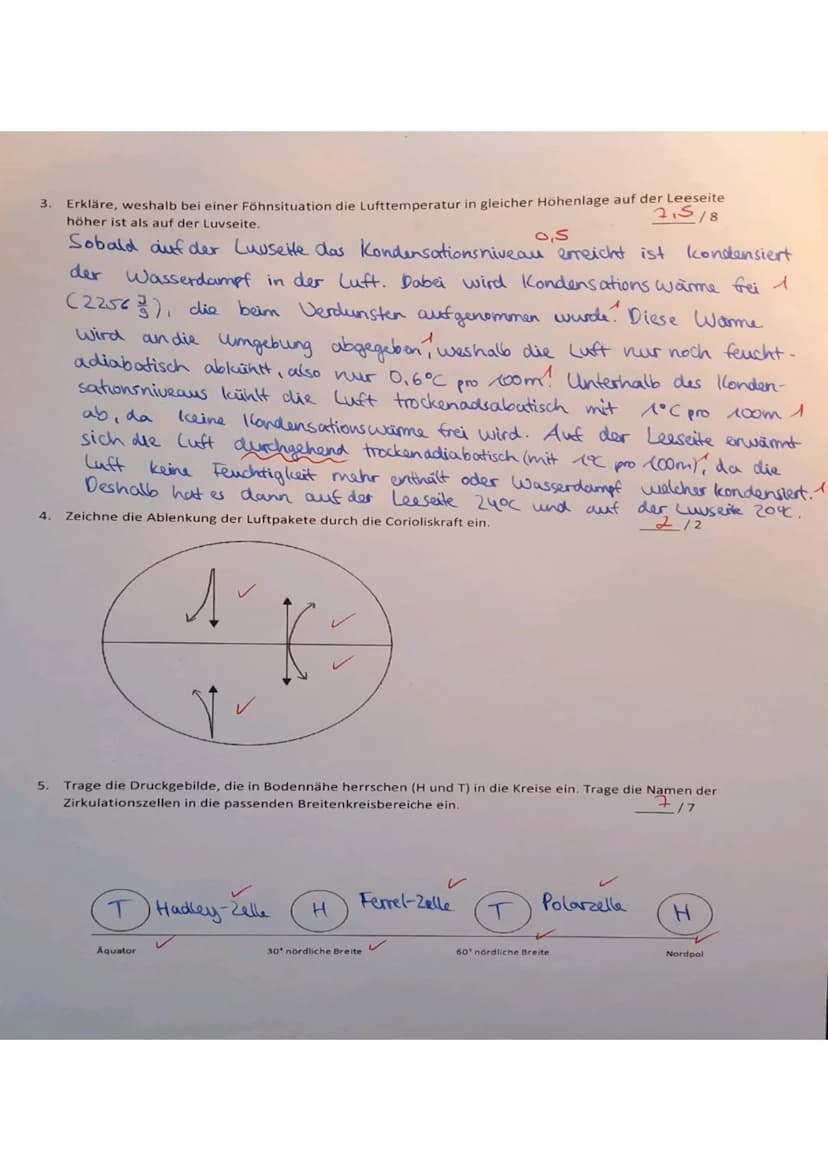 3. Erkläre, weshalb bei einer Föhnsituation die Lufttemperatur in gleicher Höhenlage auf der Leeseite
höher ist als auf der Luvseite. 7,5 / 8
0,5
Sobald auf der Luvseite das Kondensationsniveau erreicht ist kondensiert
der Wasserdampf in der Luft. Dabei wird Kondensationswärme frei 1
(2256 J/g), die beim Verdunsten aufgenommen wurde. 1 Diese Wärme
wird an die Umgebung abgegeben, 1 weshalb die Luft nur noch feucht-
adiabatisch abkühlt, also nur 0,6°C pro 100m. 1 Unterhalb des Konden-
sationsniveaus kühlt die Luft trockenadsabatisch mit 1°C pro 100m 1
ab, da keine Kondensationswärme frei wird. Auf der Leeseite erwärmt
sich die Luft durchgehend trockenadiabatisch (mit 1°C pro 100m), 1 da die
Luft keine Feuchtigkeit mehr enthält oder Wasserdampf welcher kondensiert. 1
Deshalb hat es dann auf der Leeseite 24°C und auf der Luvseite 20°C.
4. Zeichne die Ablenkung der Luftpakete durch die Corioliskraft ein. 2 / 2
5. Trage die Druckgebilde, die in Bodennähe herrschen (H und T) in die Kreise ein. Trage die Namen der
Zirkulationszellen in die passenden Breitenkreisbereiche ein. 7 / 7
T Hadley-Zelle H Ferrel-Zelle T Polarzelle H
Äquator 30° nördliche Breite 60° nördliche Breite Nordpol